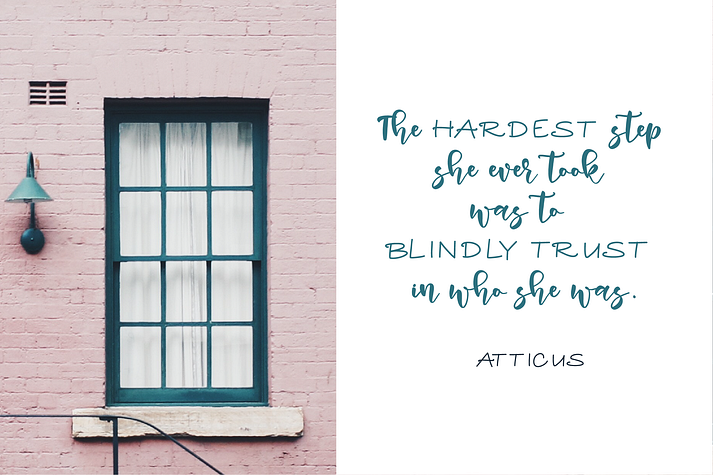 The HARDEST step
she ever took
was to
BLINDLY TRUST
in who she was.
ATTICUS